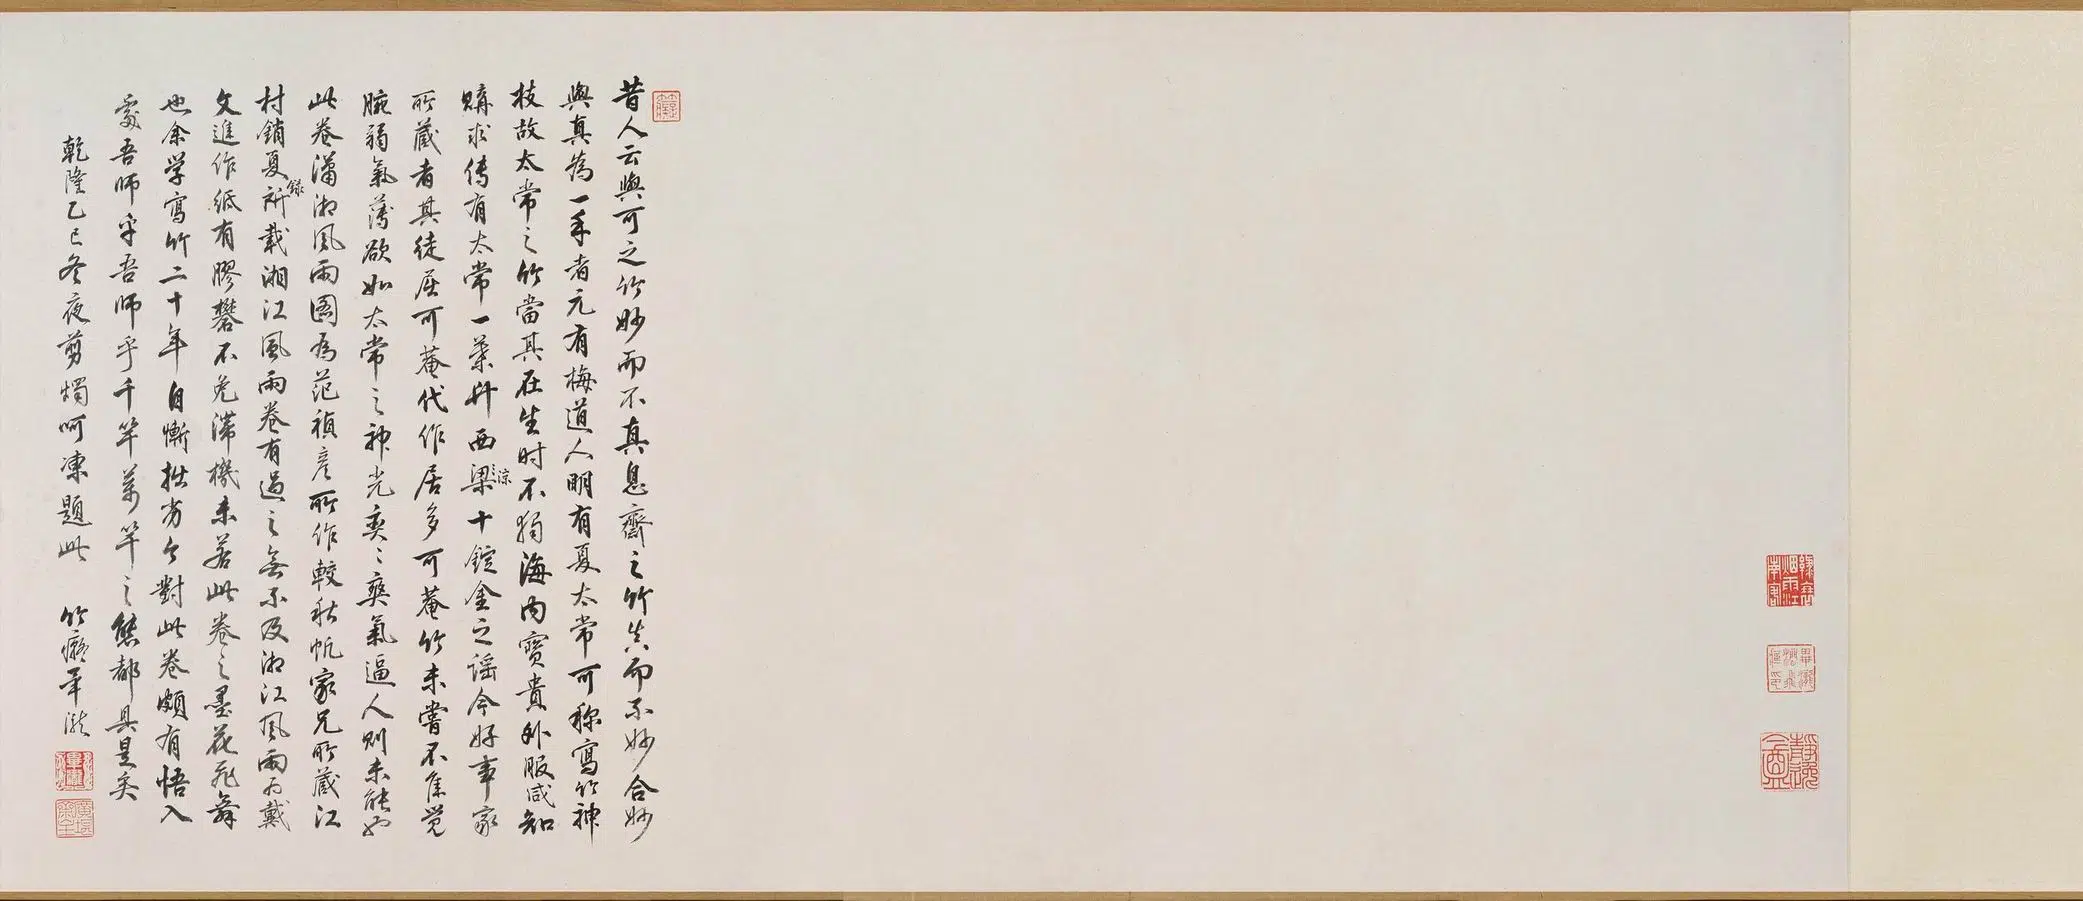 昔人云與可之竹妙而不真息齋之竹真而不妙合妙
與真為一手者元有梅道人明有夏太常可称寫竹神
枝故太常之竹當其在生时不獨海内寳貴外服咸知
購求传有太常一葉竹西梁十錠金之谣今好事家
涼
所藏者其徒屈可菴代作居多可菴竹未嘗不隹觉
腕弱氣薄欲如太常之神光奕〻爽氣逼人则未能也
此卷瀟湘風雨圖為范禎彦所作較秋帆家兄所藏江
村銷夏所載湘江風雨卷有過之無不及湘江風雨為戴
録
文進作紙有膠礬不免滞機未若此卷之墨花飛舞
也余学寫竹二十年自慚拙劣今對此卷頗有悟入
處吾師乎吾師乎千竿萬竿之態都具是矣
乾隆乙巳冬夜剪燭呵凍題此 竹癡畢瀧